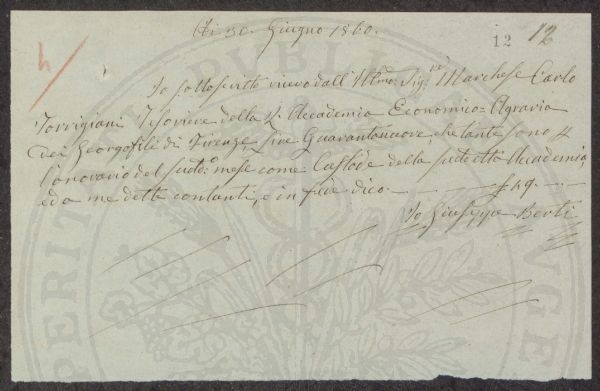 Ai 30. Giugno 1860.
12 12
Io sottoscritto ricevo dall' Illmo: Sigre Marchese Carlo
Torrigiani Tesoriere della R. Accademia Economico=Agraria
dei Georgofili di Firenze, Lire Quarantanove, che tante sono p
l'onorario del sudo. mese come Custode della sudetta Accademia,
ed a me dette contanti, e in fede dico. £ 49.
Io Giuseppe Berti